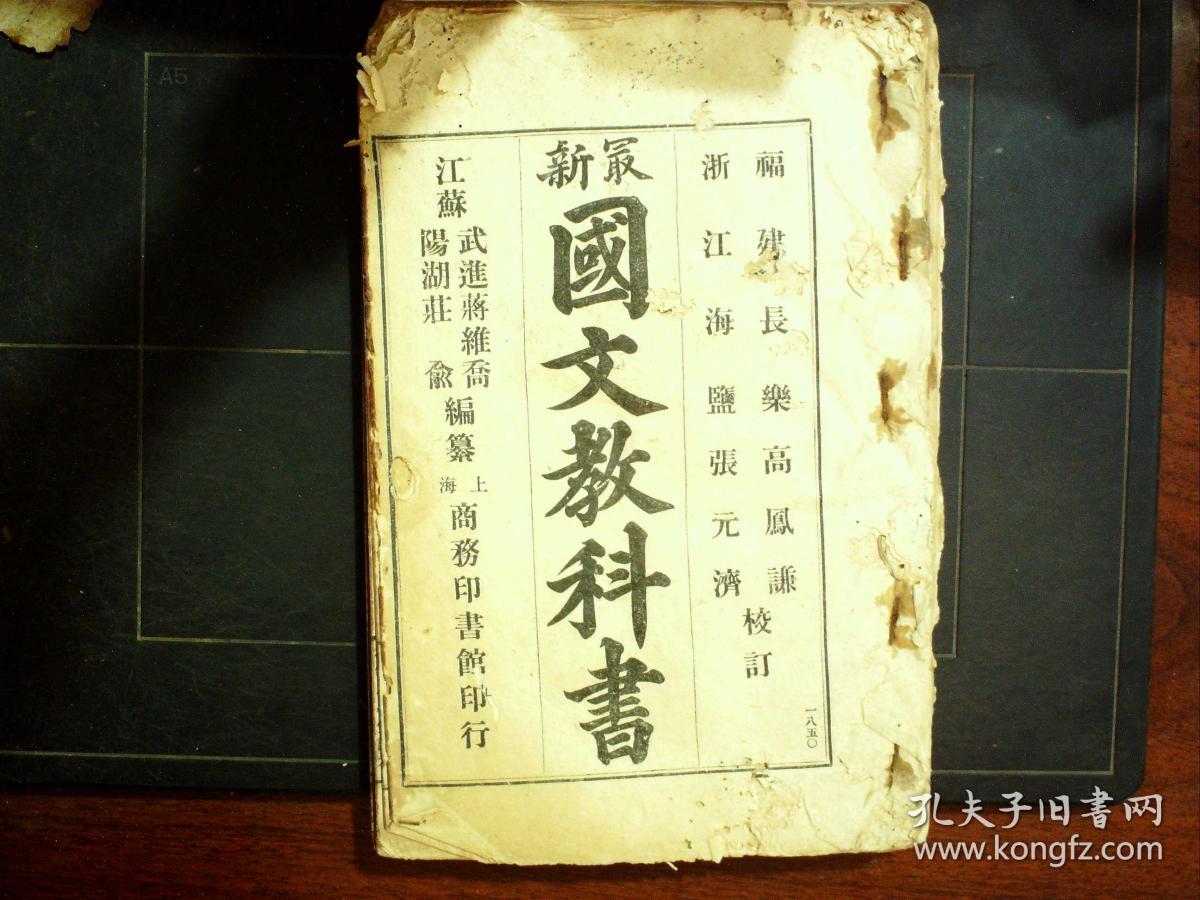 福建長樂高鳳謙
浙江海鹽張元濟
校訂
一八五〇
最新
國文教科書
江蘇
武進蔣維喬
陽湖莊俞
編纂
上海
商務印書館印行
A5
孔夫子旧书网
www.kongfz.com